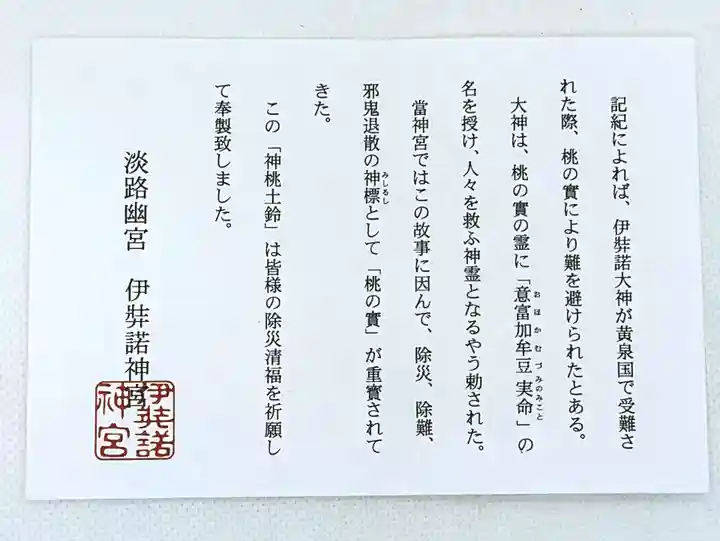 記紀によれば、伊弉諾大神が黄泉国で受難さ
れた際、桃の實により難を避けられたとある。
大神は、桃の實の霊に「意富加牟豆実命」の
おほかむづみのみこと
名を授け、人々を救ふ神霊となるやう勅された。
當神宮ではこの故事に因んで、除災、除難、
邪鬼退散の神標として「桃の實」が重寳されて
みしるし
きた。
この「神桃土鈴」は皆様の除災清福を祈願し
て奉製致しました。
淡路幽宮 伊弉諾神宮
伊弉諾
神宮